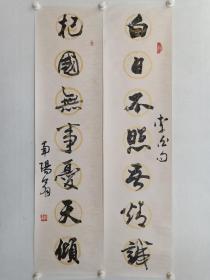 白日不照吾精誠
李白句
杞國無事憂天傾
南陽翁